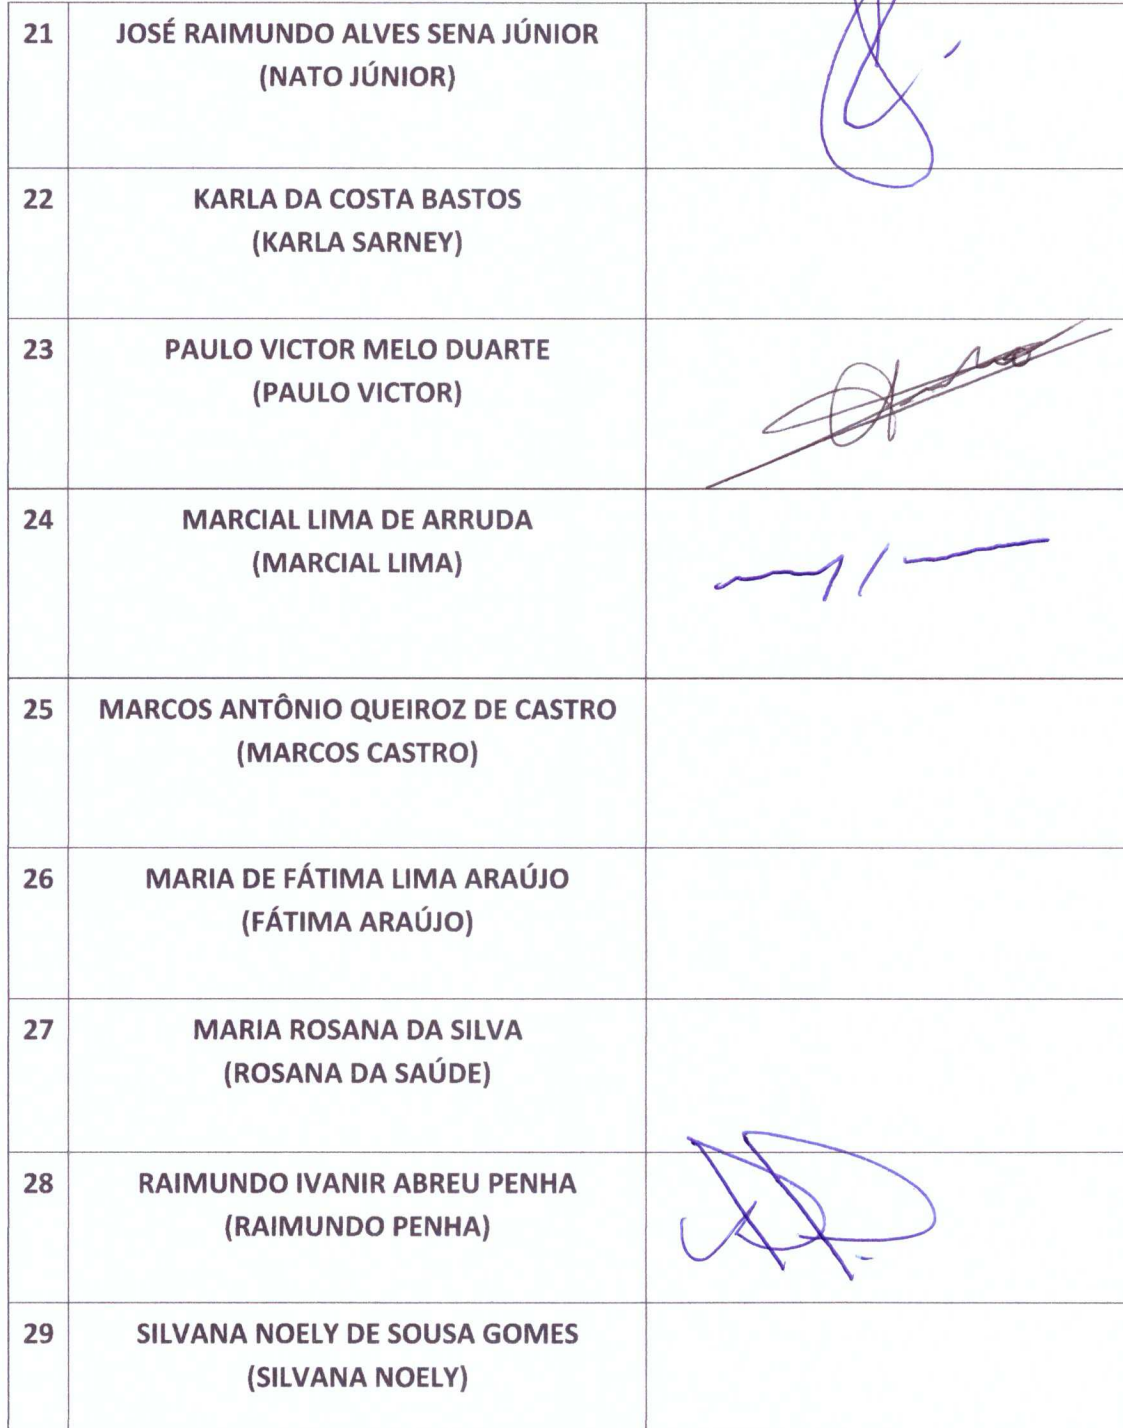 21 JOSÉ RAIMUNDO ALVES SENA JÚNIOR
(NATO JÚNIOR)
22 KARLA DA COSTA BASTOS
(KARLA SARNEY)
23 PAULO VICTOR MELO DUARTE
(PAULO VICTOR)
24 MARCIAL LIMA DE ARRUDA
(MARCIAL LIMA)
25 MARCOS ANTÔNIO QUEIROZ DE CASTRO
(MARCOS CASTRO)
26 MARIA DE FÁTIMA LIMA ARAÚJO
(FÁTIMA ARAÚJO)
27 MARIA ROSANA DA SILVA
(ROSANA DA SAÚDE)
28 RAIMUNDO IVANIR ABREU PENHA
(RAIMUNDO PENHA)
29 SILVANA NOELY DE SOUSA GOMES
(SILVANA NOELY)